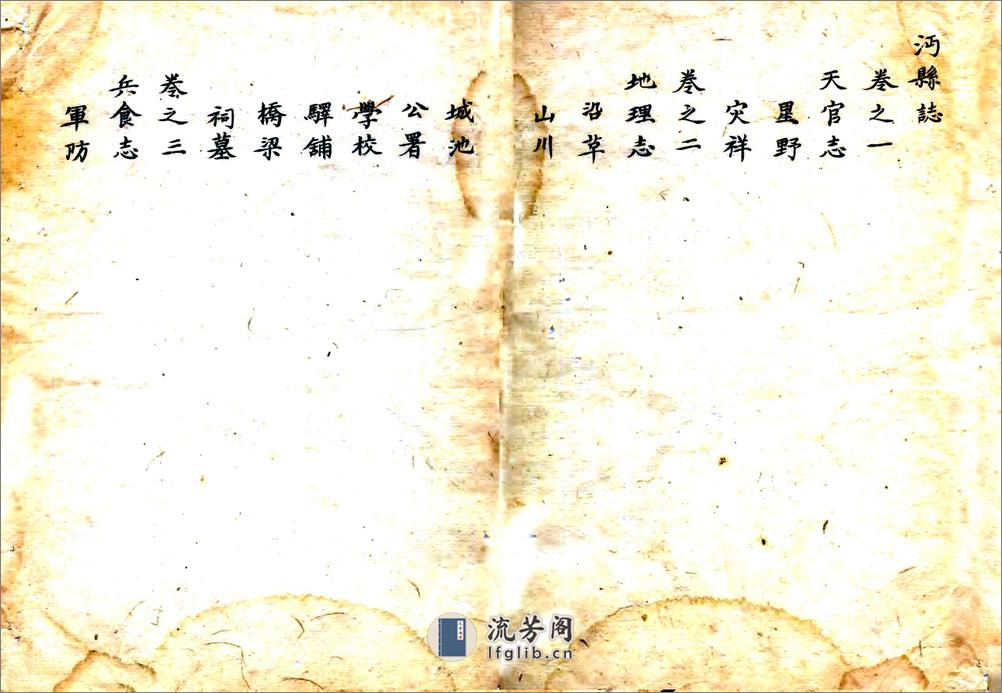 沔縣誌
卷之一
天官志
星野
灾祥
卷之二
地理志
沿革
山川
城池
公署
學校
驛鋪
橋梁
祠墓
卷之三
兵食志
軍防
流芳阁
lfglib.cn